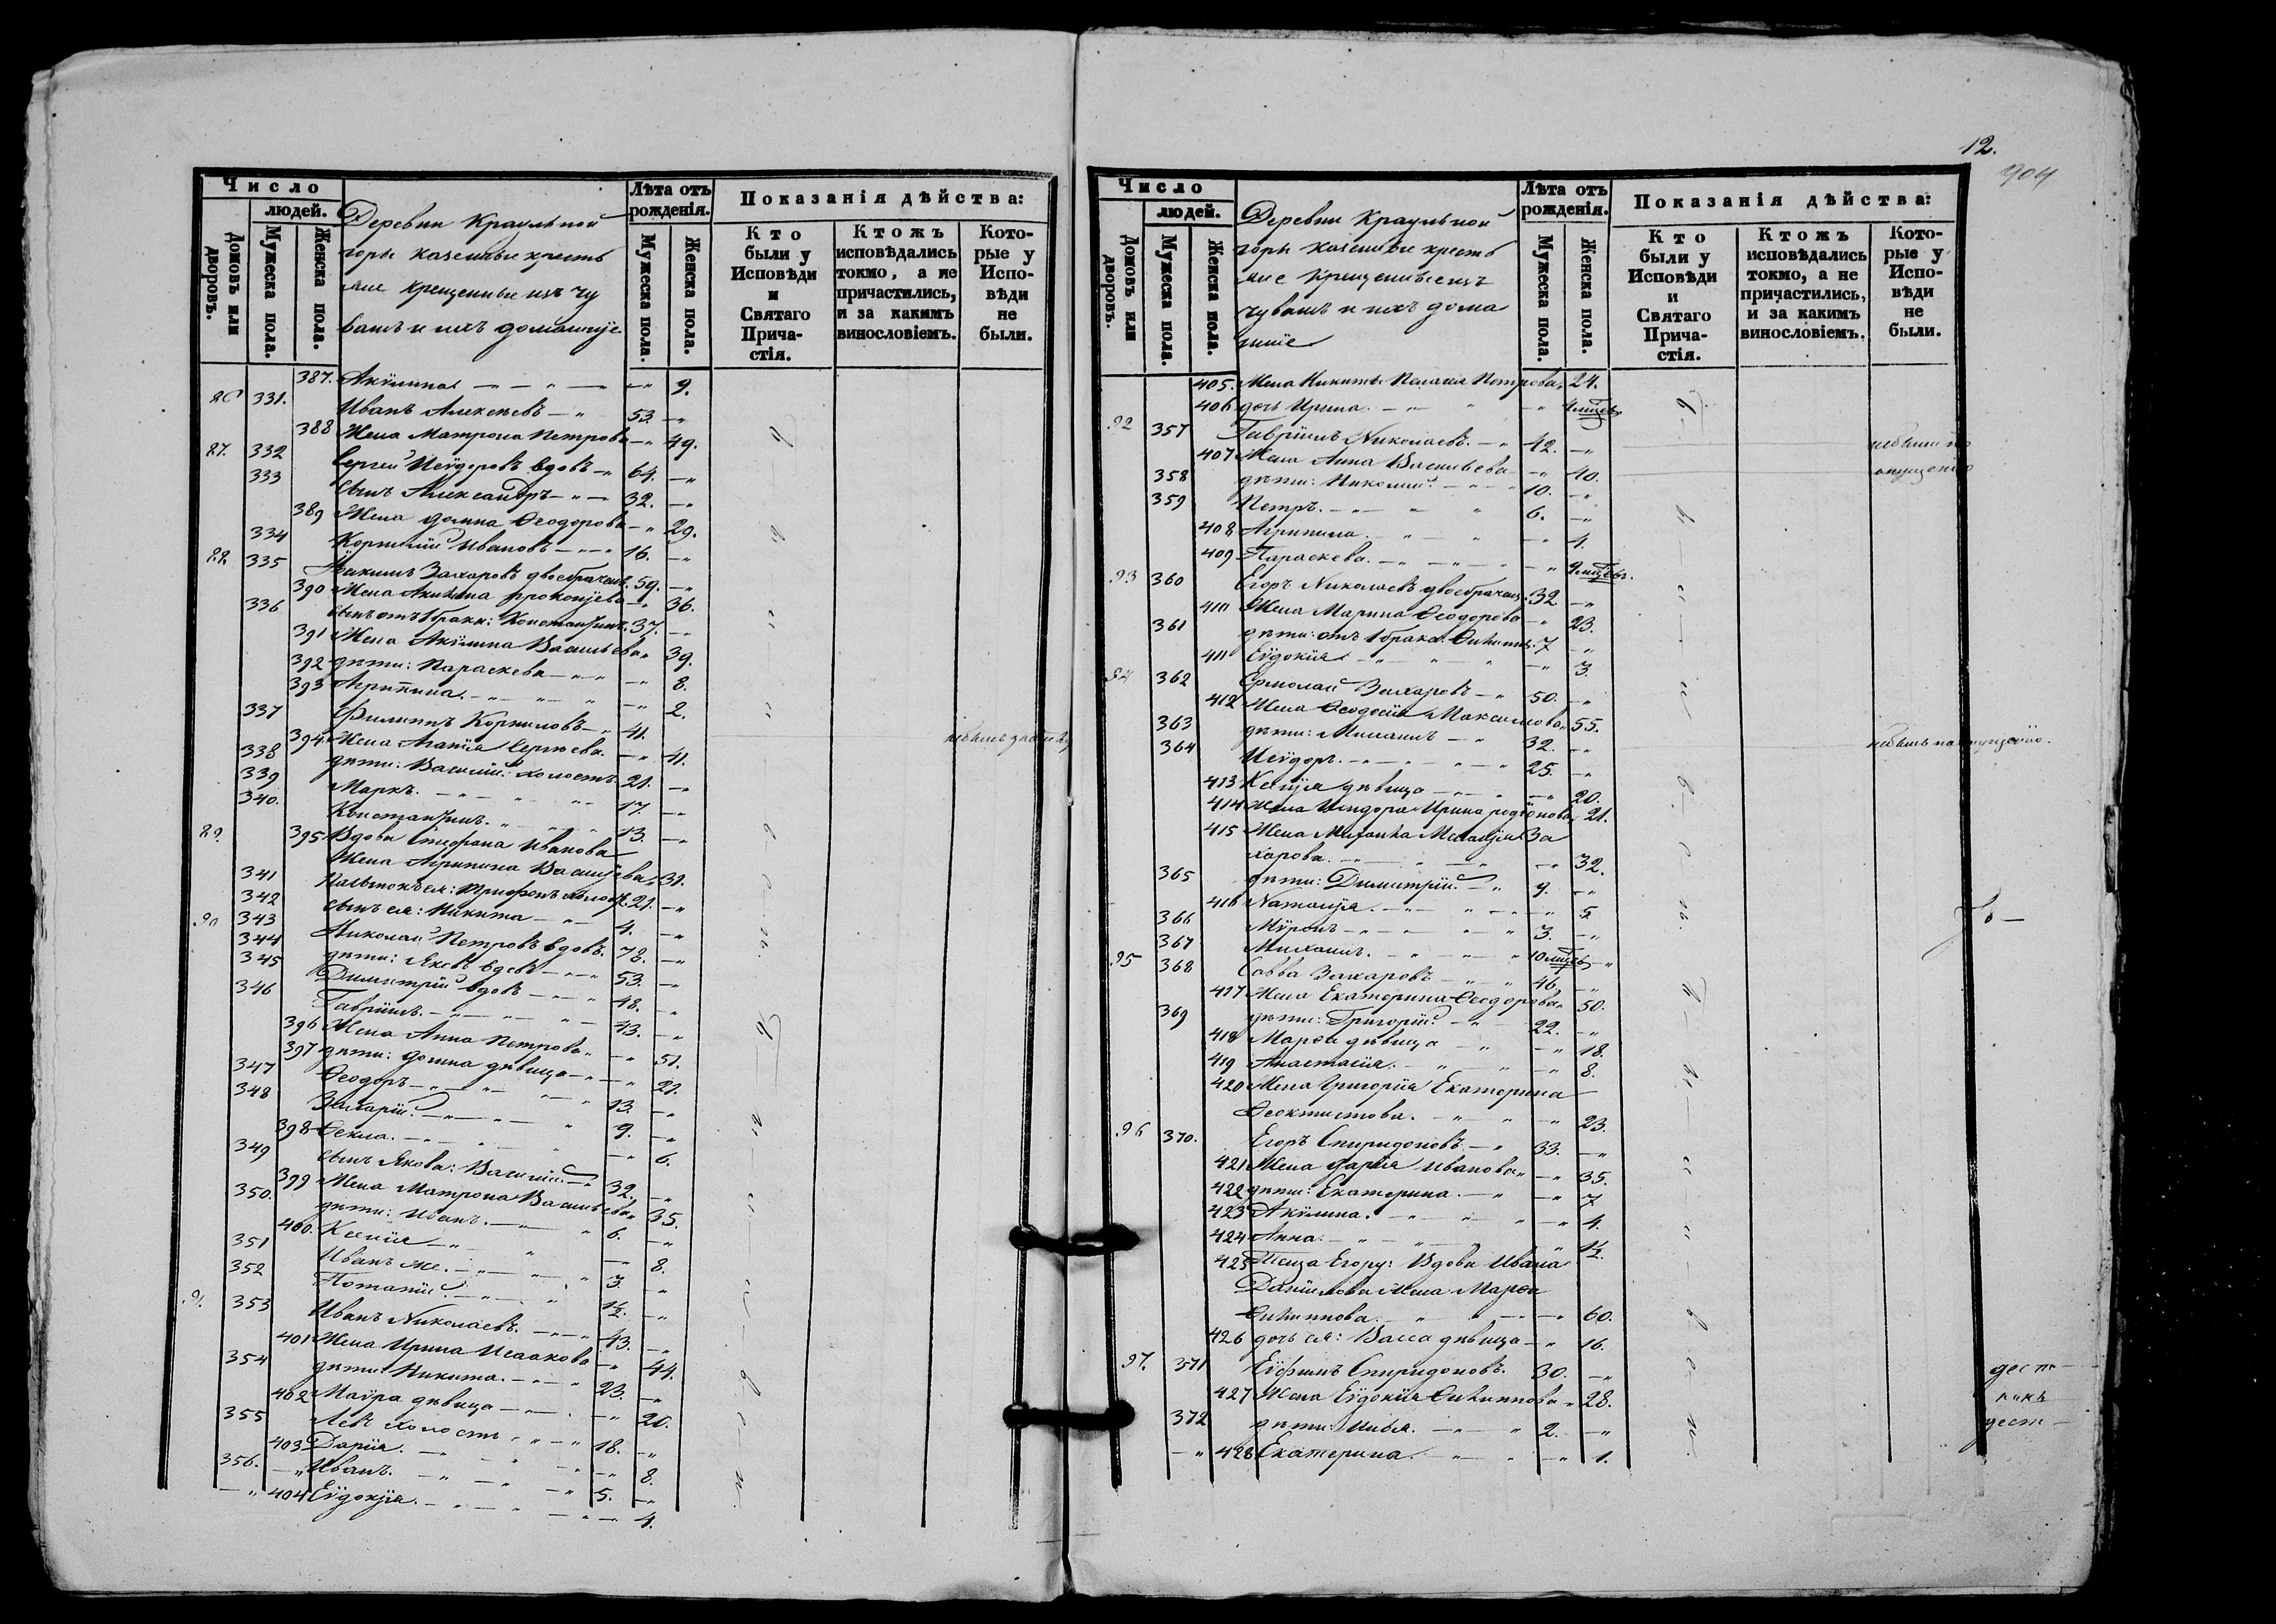 Число
людей.
Домовъ или дворовъ.
Мужеска пола.
Женска пола.
Деревни Краульной
горы казенные кресть
яне крещенные изъ чу
вашъ и ихъ домашніе
Лѣта отъ рожденія.
Мужеска пола.
Женска пола.
Показанія дѣйства:
Кто были у Исповѣди и Святаго Причастія.
Ктожъ исповѣдались токмо, а не причастились, и за какимъ винословіемъ.
Которые у Исповѣди не были.
387. Акѵлина 9.
331. Иванъ Алексѣевъ 53.
388 Жена Матрона Петрова 49.
87. 332 Сергей Исѵдоровъ вдовъ 64.
333 сынъ Александръ 32.
389 Жена Домна Ѳеодорова 29.
334 Корнилій Ивановъ 16.
88 335 Іакимъ Захаровъ двоебрачен. 59.
390 Жена Акилина Прокопіева 36.
336 сынъ отъ 1 брака: Константинъ. 37.
391 Жена Акѵлина Васильева 39.
392 дѣти: Параскева 8.
393 Агрипина. 2.
337 Филиппъ Корниловъ 41.
394 Жена Агапія Сергѣева 41.
338 дѣти: Василій холостъ 21.
339 Маркъ. 17.
340. Константинъ. 13.
89. 395 Вдова Стефана Иванова
Жена Агрипина Васильева 39.
341 Трифонъ холост. 21.
342 сынъ ея: Никита 4.
90 343 Николай Петровъ вдовъ. 78.
344 дѣти: Яковъ вдовъ 53.
345 Димитрій вдовъ 48.
346 Гавріилъ. 43.
396 Жена Анна Петрова 51.
397 дѣти: Домна дѣвица 21.
347 Ѳеодоръ 13.
348 Захарій. 9.
398 Ѳекла. 6.
349 сынъ Якова: Василій 32.
399 Жена Матрона Васильева 35.
350. дѣти: Иванъ. 6.
400. Ксенія 8.
351 Иванъ же. 3.
352 Потапій. 1½.
91. 353 Иванъ Николаевъ. 43.
401 Жена Ирина Исаакова 44.
354 дѣти: Никита. 23.
402 Маѵра дѣвица 20.
355 Левъ холостъ 18.
403 Дарія. 8.
356. Иванъ. 5.
404 Еѵдокія. 4.
12.
904
Число
людей.
Домовъ или дворовъ.
Мужеска пола.
Женска пола.
Деревни Краульной
горы казенные кресть
яне крещенные изъ
чувашъ и ихъ дома
шніе
Лѣта отъ рожденія.
Мужеска пола.
Женска пола.
Показанія дѣйства:
Кто были у Исповѣди и Святаго Причастія.
Ктожъ исповѣдались токмо, а не причастились, и за какимъ винословіемъ.
Которые у Исповѣди не были.
405. Жена Никиты Пелагея Петрова 24.
406 дочь Ирина.
92 357 Гавріилъ Николаевъ. 42.
407 Жена Анна Васильева 40.
358 дѣти: Николай 10.
359 Петръ. 6.
408 Агрипина. 4.
409 Параскева.
93 360 Егоръ Николаевъ двоебрачен. 32
410 Жена Марина Ѳеодорова 23.
361 дѣти: отъ 1 брака: 7
411 Еѵдокія 3.
94 362 Ермолай Захаровъ 50.
412 Жена Ѳеодосія Максимова 55.
363 дѣти: Михаилъ 32.
364 Исѵдоръ. 25.
небылъ по опущенію.
413 Ксенія дѣвица 20.
414 Жена Исидора Ирина Родіонова 21.
415 Жена Михаила Меланія За
харова. 32.
365 дѣти: Димитрій 9.
416 Наталія. 5.
366 Мѵронъ 3.
367 Михаилъ.
95 368 Савва Захаровъ 46.
417 Жена Екатерина Ѳеодорова 50.
369 дѣти: Григорій 22.
418 Марѳа дѣвица 18.
419 Анастасія. 8.
420 Жена Григорія Екатерина
Ѳеоктистова. 23.
96 370. Егоръ Спиридоновъ 33.
421 Жена Дарія Иванова 35.
422 дѣти: Екатерина. 7
423 Акѵлина. 4.
424 Анна. 1½.
425 Теща Егору: Вдова Ивана
Даніилова Жена Марѳа
Филиппова. 60.
426 дочь ея: Васса дѣвица 16.
97. 371 Еѵфимъ Спиридоновъ. 30.
427 Жена Еѵдокія Филиппова 28.
372 дѣти: Илья. 2.
428 Екатерина. 1.